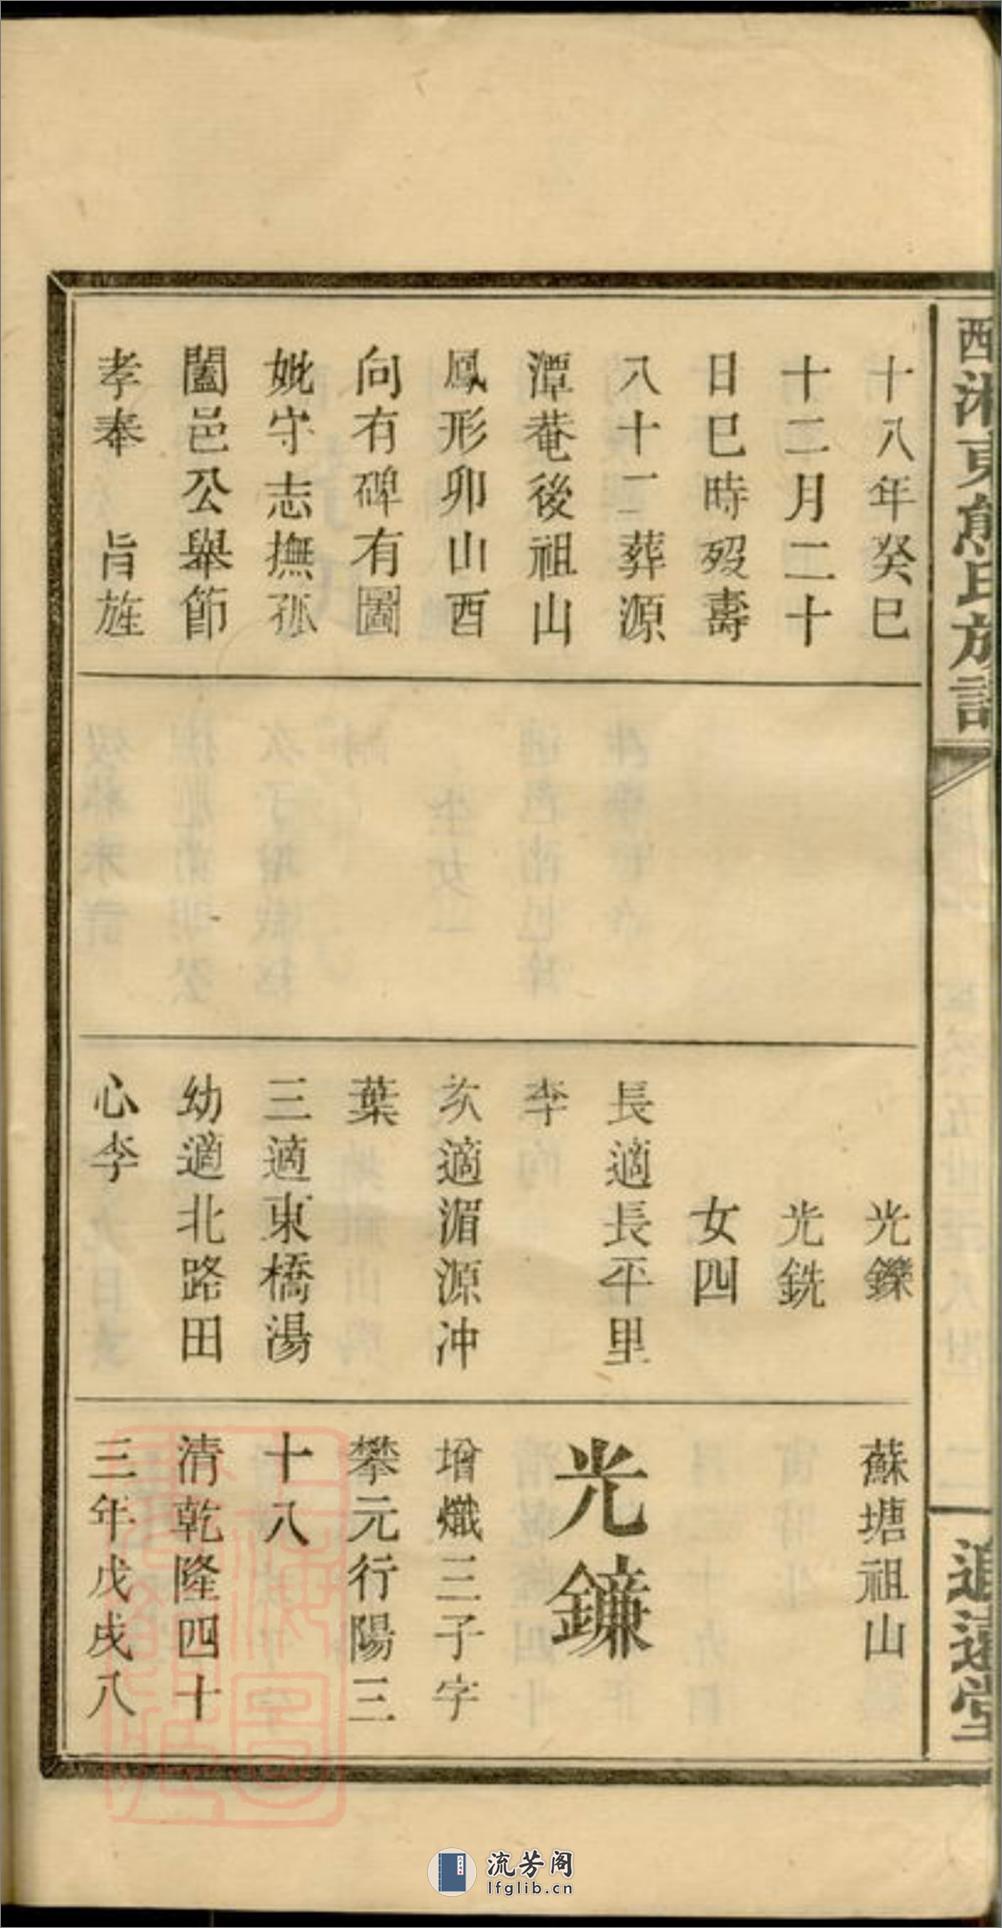 西湘東熊氏族譜
十八年癸巳
十二月二十
日巳時歿壽
八十二葬源
潭菴後祖山
鳳形卯山酉
向有碑有圖
妣守志撫孤
闔邑公舉節
孝奉　旨旌
光鑠
光銑
女四
長適長平里
李
次適湄源冲
葉
三適東橋湯
幼適北路田
心李
蘇塘祖山
光鐮
增熾三子字
攀元行陽三
十八
清乾隆四十
三年戊戌八
二
追遠堂
流芳阁
lfglib.cn